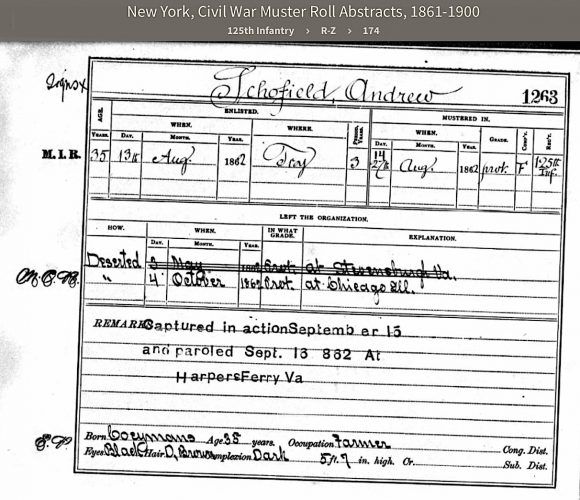 New York, Civil War Muster Roll Abstracts, 1861-1900
125th Infantry › R-Z › 174
Schofield, Andrew 1263
ENLISTED. MUSTERED IN.
AGE. WHEN. WHERE. PERIOD, YEARS. WHEN. GRADE. COMP'Y. REG'T.
YEARS. DAY. MONTH. YEAR. DAY. MONTH. YEAR.
M.I.R. 35 13th Aug. 1862 Troy 3 Aug. 1862 prvt. F 125th Inf.
LEFT THE ORGANIZATION.
HOW. WHEN. IN WHAT GRADE. EXPLANATION.
DAY. MONTH. YEAR.
Deserted 3 May Prvt. at Va.
" 4 October 1862 Prvt. at Chicago Ill.
REMARKS Captured in action Septemb er 15
and paroled Sept. 13 862 At
HarpersFerry Va
Born Coeymans Age 35 years. Occupation Farmer Cong. Dist.
Eyes Black Hair D. Brown Complexion Dark 5 ft. 7 in. high. Cr. Sub. Dist.